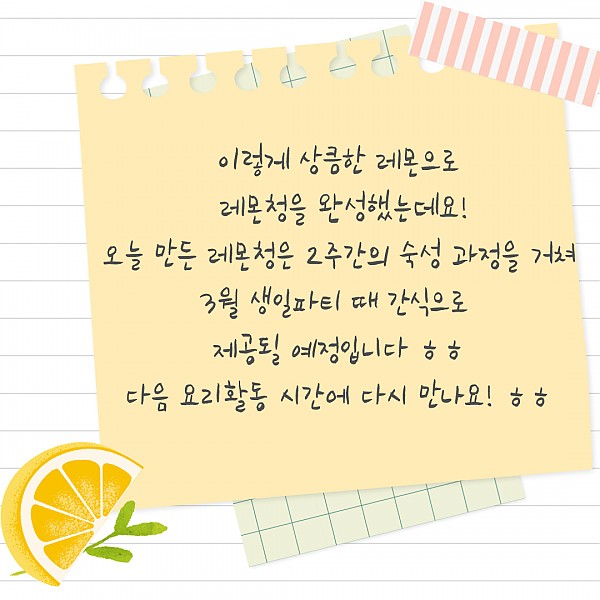 이렇게 상큼한 레몬으로
레몬청을 완성했는데요!
오늘 만든 레몬청은 2주간의 숙성 과정을 거쳐
3월 생일파티 때 간식으로
제공될 예정입니다 ㅎㅎ
다음 요리활동 시간에 다시 만나요! ㅎㅎ